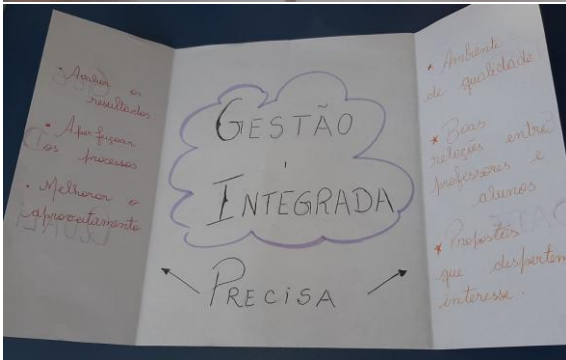 • Avaliar os
resultados.
• Aperfeiçoar
os processos
• Melhorar o
aproveitamento
GESTÃO
INTEGRADA
PRECISA
* Ambiente
de qualidade
* Boas
relações entre
professores e
alunos
* Propostas
que despertem
interesse.